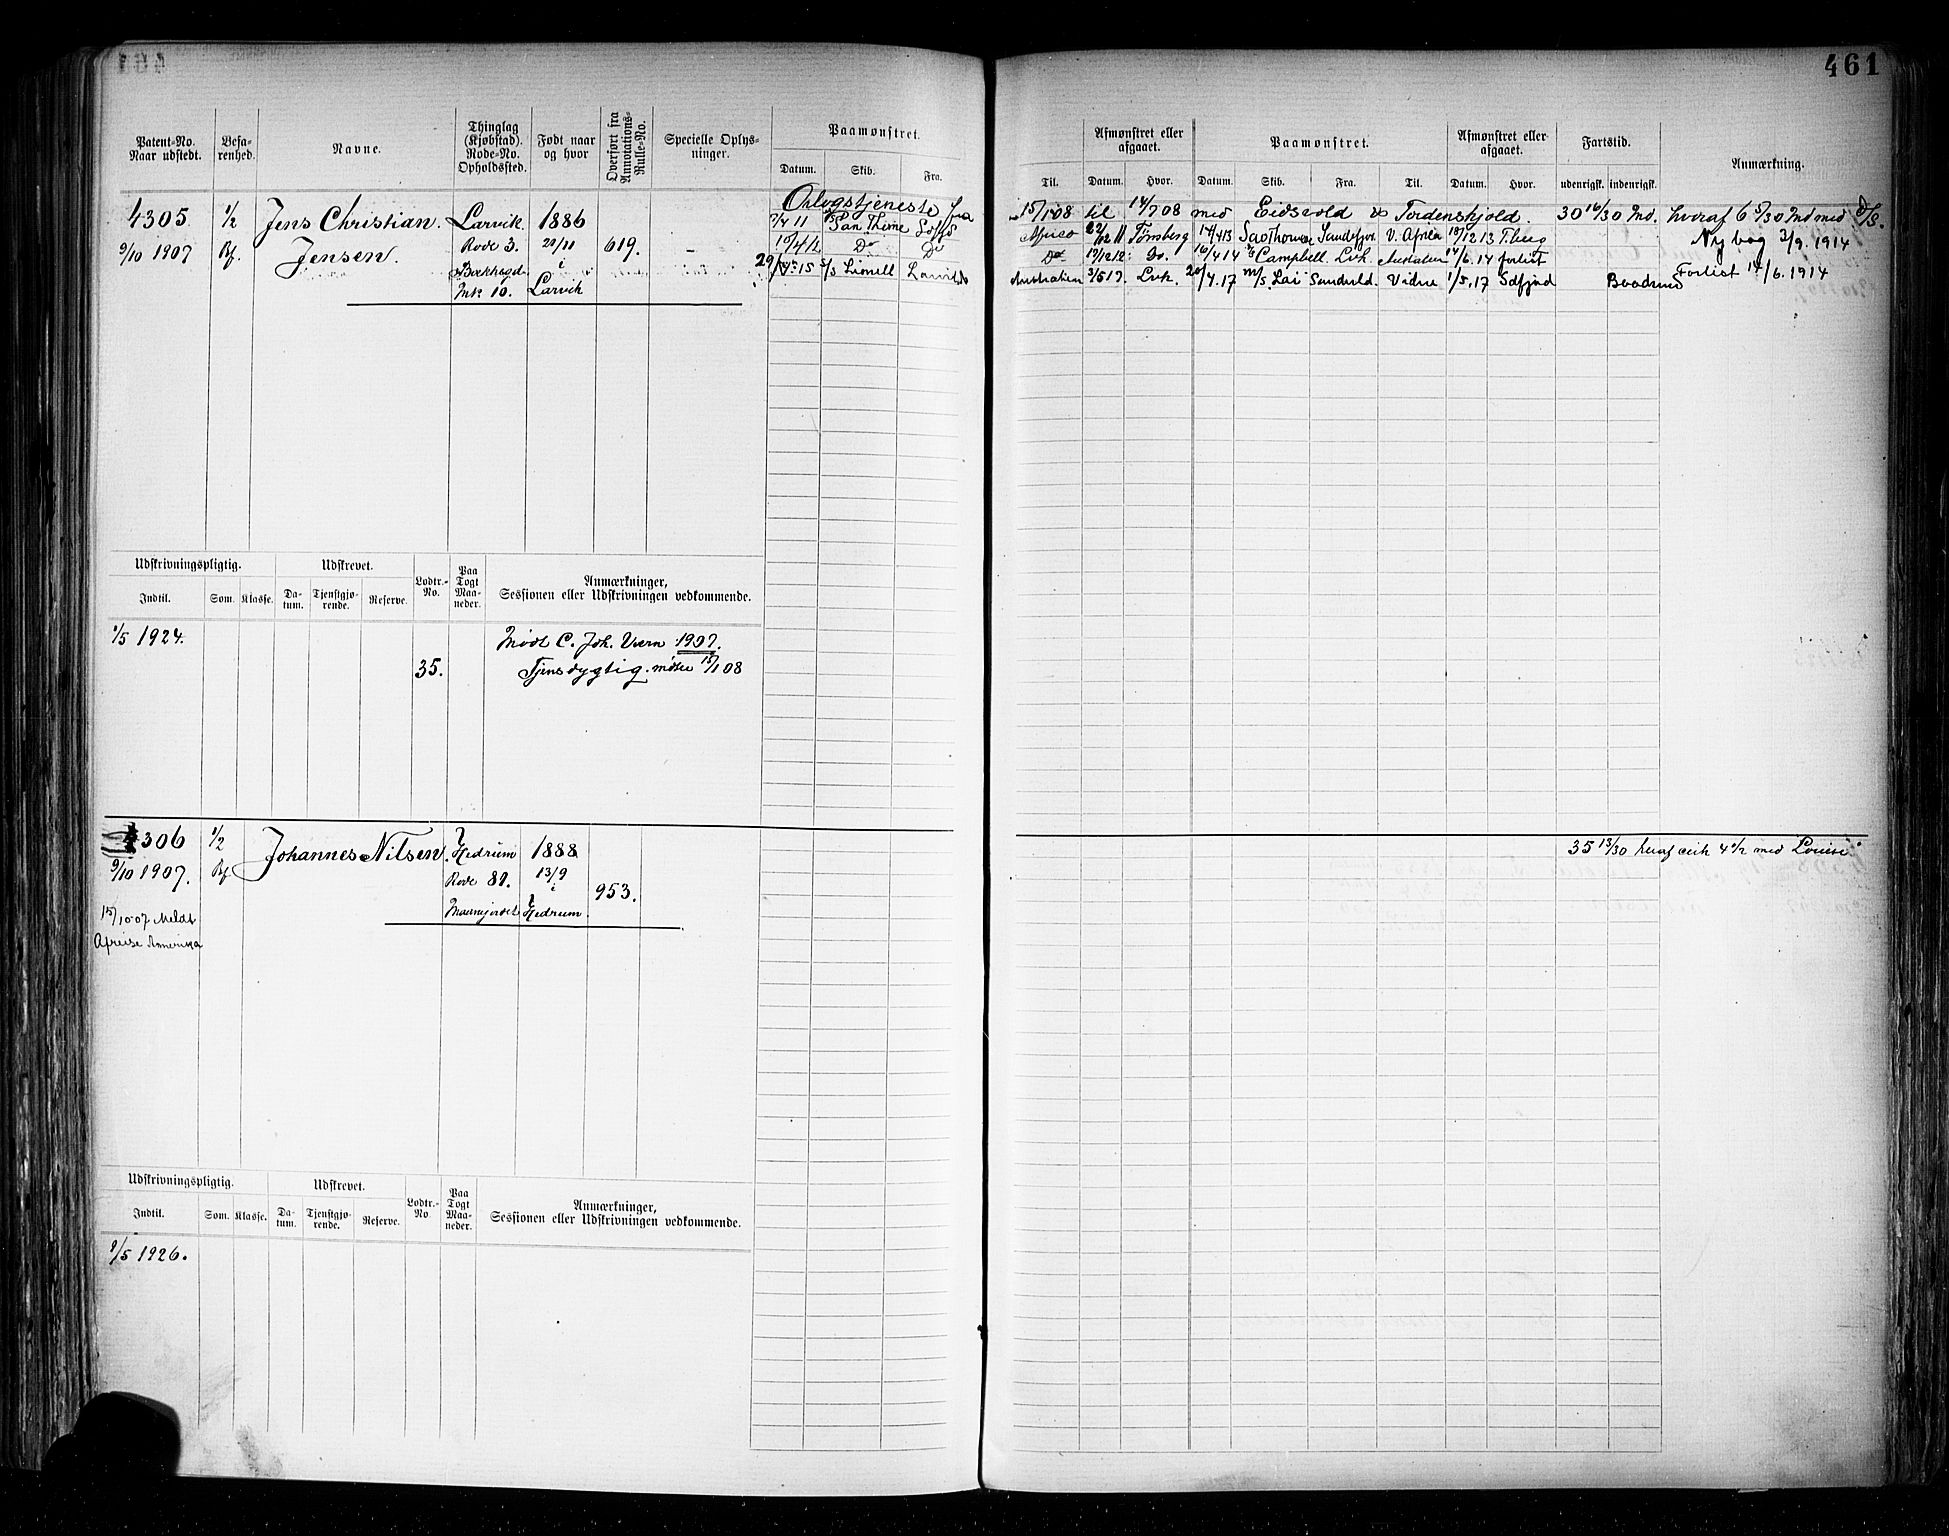 461
Patent-No. Naar udstedt.
Befarenhed.
Navne.
Thinglag (Kjøbstad). Rode-No. Opholdssted.
Født naar og hvor
Overført fra Annotations-Rulle-No.
Specielle Oplysninger.
Paamønstret.
Datum. Skib. Fra.
Til.
Afmønstret eller afgaaet.
Datum. Hvor.
Paamønstret.
Datum. Skib. Fra. Til.
Afmønstret eller afgaaet.
Datum. Hvor.
Fartstid.
udenrigsk. indenrigsk.
Anmærkning.
4305 1/2 Jens Christian Larvik 1886
9/10 1907 Bf. Jensen. Rode 3. 28/11 619. -
i
Mk 10. Larvik
Orlogstjeneste fra 15/1 08 til 14/7 08 med Eidsvold & Tordenskjold. 30 16/30 Md. hvoraf 6 5/30 Md med D/S.
7/4 11 Tønsberg 14/4 13 Sandefjor V. Afrika 12 13 T.berg Ny bog 3/9. 1914
Do Do Do Do. 16/4 14 Campbell Lvk Australien 14/6. 14 forlist Forlist 14/6. 1914
15 S/S Larvik Australien Lvk. 20/4. 17 M/S. 1/5. 17 Sdfjord Baadsmd
Udskrivningspligtig. Udskrevet. Lodtr.-No. Paa Togt Maaneder. Anmærkninger, Sessionen eller Udskrivningen vedkommende.
Indtil. Som. Klasse. Datum. Tjenstgjørende. Reserve.
1/5 1924. Mødt C. Joh. Værn 1907.
35. Tjensdygtig. møder 15/1 08
4306 1/2 Johannes Nilsen Hedrum 1888 35 13/30 heraf 4 1/2 med Louise
9/10 1907. Bf. Rode 81. 13/9 953.
i
15/10 07 Meldt Hedrum.
Afreise Amerika
Udskrivningspligtig. Udskrevet. Lodtr.-No. Paa Togt Maaneder. Anmærkninger, Sessionen eller Udskrivningen vedkommende.
Indtil. Som. Klasse. Datum. Tjenstgjørende. Reserve.
1/5 1926.